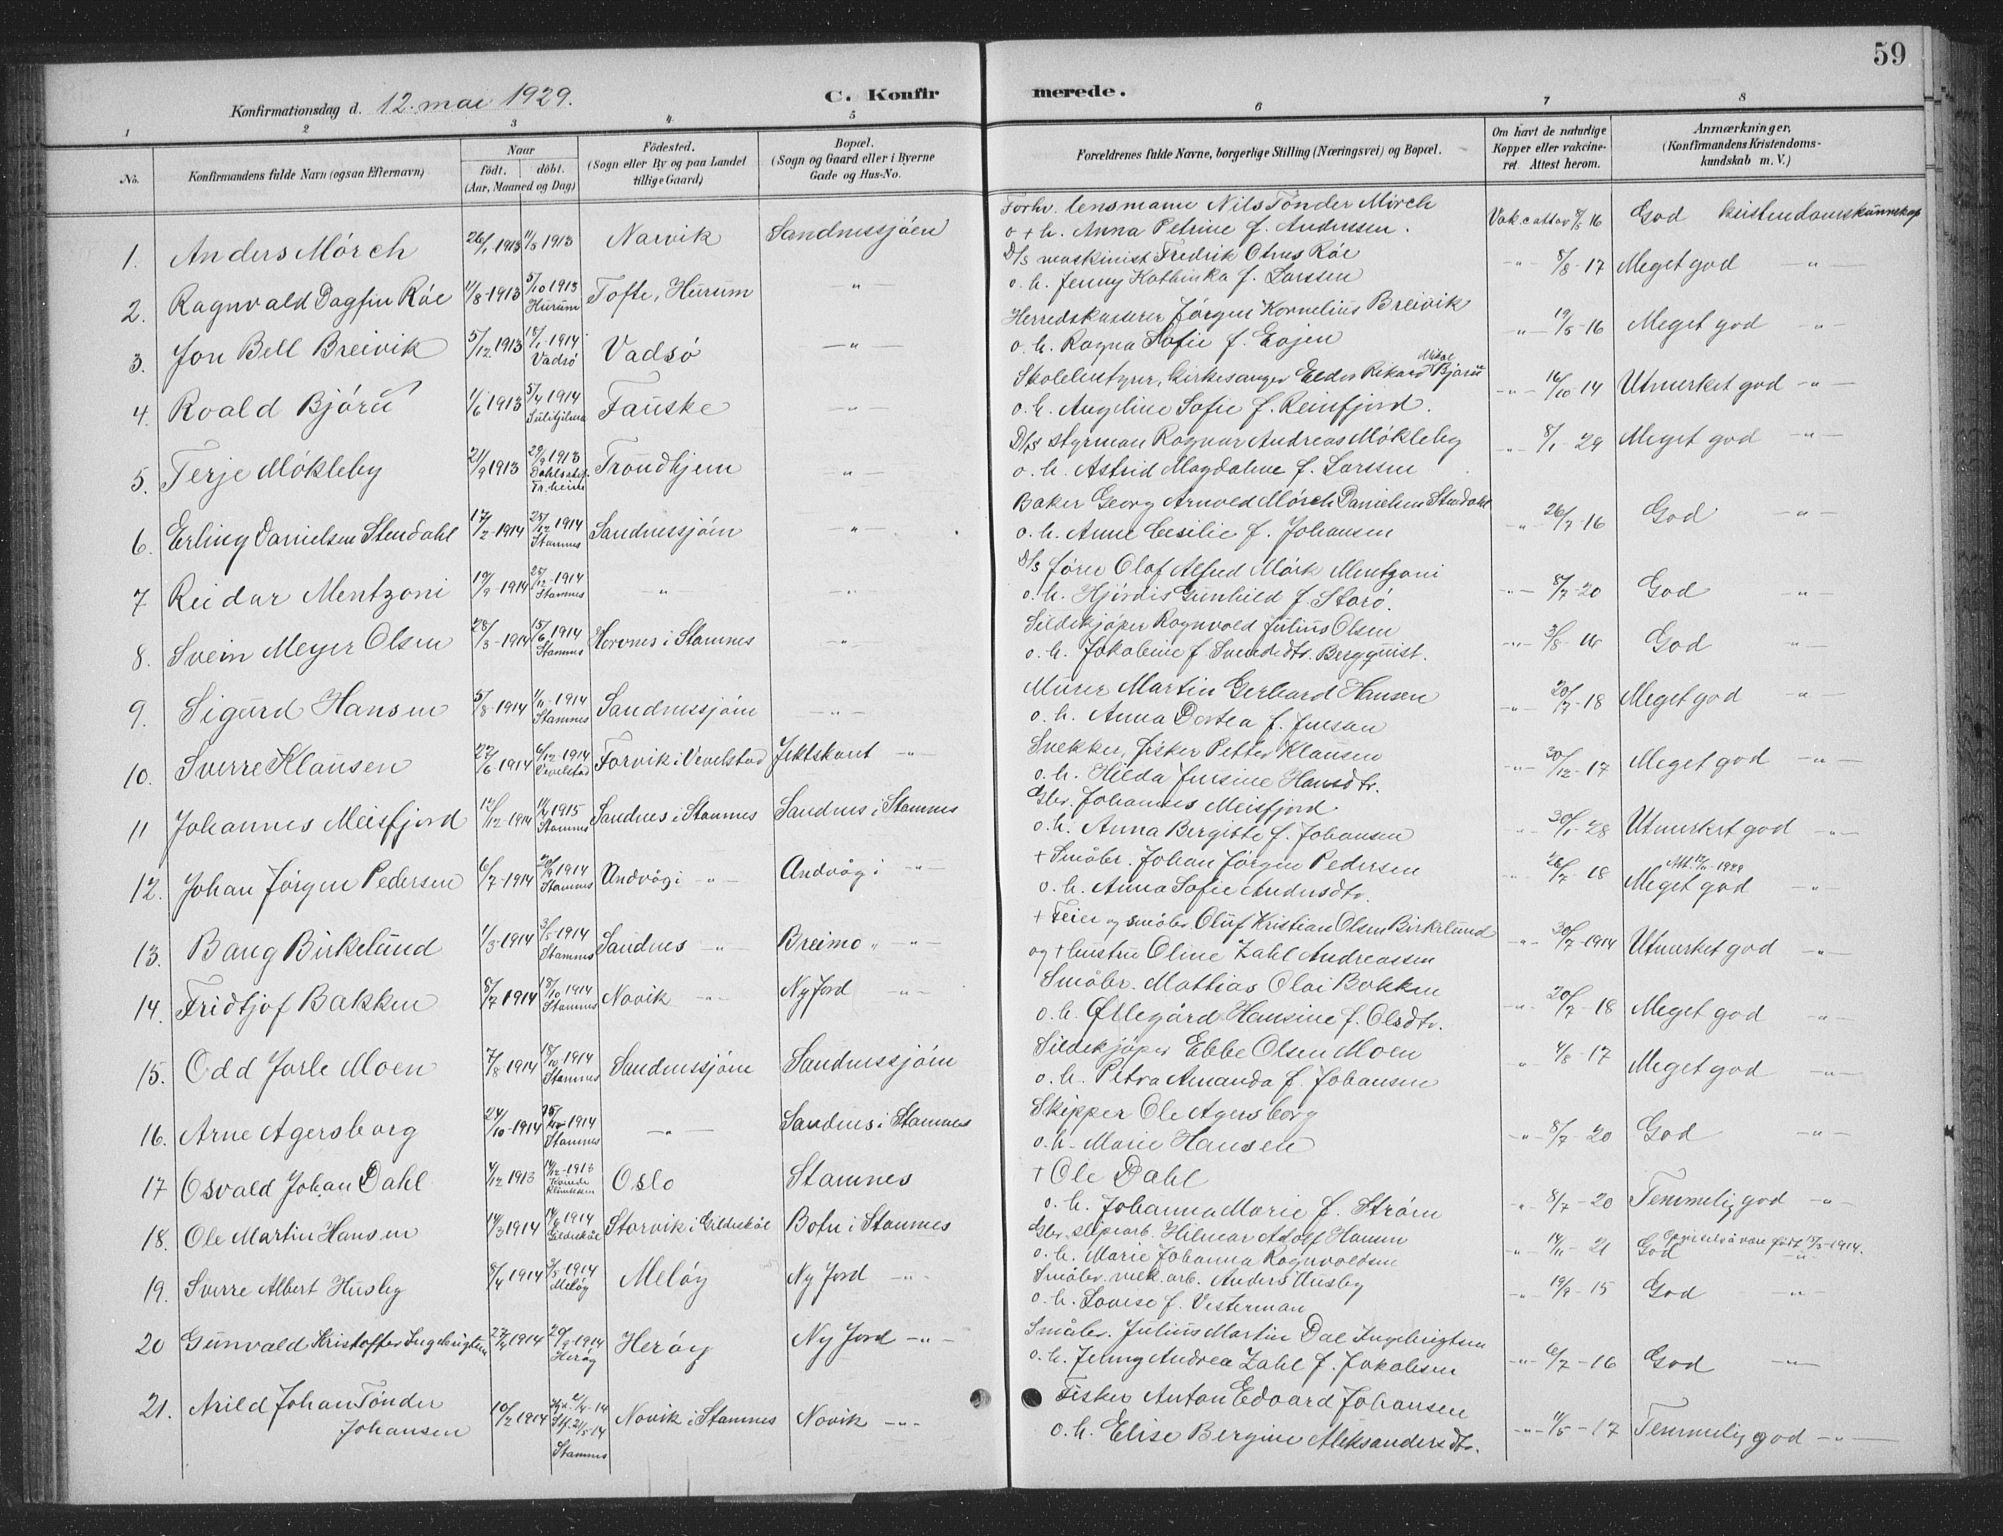 59
Konfirmationsdag d. 12. mai 1929.
C. Konfirmerede.
1 2 3 4 5 6 7 8
No.
Konfirmandens fulde Navn (ogsaa Efternavn)
Naar
födt. döbt.
(Aar, Maaned og Dag)
Födested.
(Sogn eller By og paa Landet
tillige Gaard)
Bopæl.
(Sogn og Gaard eller i Byerne
Gade og Hus-No.
Forældrenes fulde Navne, borgerlige Stilling (Næringsvei) og Bopæl.
Om havt de naturlige
Kopper eller vakcine-
ret. Attest herom.
Anmærkninger,
(Konfirmandens Kristendoms-
kundskab m. V.)
1. Anders Mörch 26/1 1913 11/5 1913 Narvik Sandnessjöen Forhv. lensmann Nils Tönder Mörch
o + h. Anna Petrine f. Anderssen. Vakc. att av 8/5 16 God kristendomskunnskap
2. Ragnvald Dagfin Röe 11/8-1913 5/10 1913 Hurum Tofte, Hurum -"- D/S maskinist Fredrik Otnes Röe
o. h. Jenny Kathinka f. Larssen -"- 8/8-17 Meget god -"-
3. Jon Bell Breivik 5/12 1913 18/1-1914 Vadsö Vadsö -"- Herredskasserer Jörgen Kornelius Breivik
o. h. Ragna Sofie f. Eojen -"- 19/5-16 Meget god -"-
4. Roald Björu 1/6 1913 5/4 1914 Sulitjelma Fauske -"- Skolebestyrer, kirkesanger Eldor Rikard Björu
o. h. Angeline Sofie f. Reinfjord. -"- 16/10 14 Utmerket god -"-
5. Terje Mökleby 21/9 1913 29/9 1913 Trondhjem -"- D/S styrman Ragnar Andreas Mökleby
o. h. Astrid Magdalene f. Larssen -"- 8/1-29 Meget god -"-
6. Erling Danielsen Stendahl 17/2-1914 25/12 1914 Stamnes Sandnessjöen -"- Baker Georg Arnold Mörch Danielsen Stendahl
o. h. Anne Cecilie f. Johansen -"- 26/7-16 God -"-
7 Reidar Mentzoni 19/9-1914 25/12-1914 Stamnes -"- -"- D/S förer Olaf Alfred Mörk Mentzoni
o. h. Hjördis Gunhild f. Storö. -"- 8/7-20 God -"-
8. Svein Meyer Olsen 28/3-1914 15/6 1914 Stamnes Horvnes i Stamnes -"- Sildekjöper Ragnvald Julius Olsen
o. h. Jakobine f Svendsdtr. Bergquist. -"- 3/8-16 God -"-
9. Sigurd Hansen 5/8-1914 1/11-1914 Stamnes Sandnessjöen -"- Murer Martin Gerhard Hansen
o. h. Anna Dortea f. Jensen -"- 20/7-18 Meget god -"-
10. Sverre Klausen 27/6-1914 6/12-1914 Vevelstad Forvik i Vevelstad Jektskaret -"- Snekker, fisker Petter Klausen
o. h. Hilda Jensine Hansdtr. -"- 30/12-17 Meget god -"-
11 Johannes Meisfjord 12/12-1914 11/4 1915 Stamnes Sandnes i Stamnes Sandnes i Stamnes Gbr. Johannes Meisfjord
o. h. Anna Bergitte f. Johansen -"- 30/1-28 Utmerket god -"-
12. Johan Jörgen Pedersen 6/7-1914 20/9 1914 Stamnes Andvåg i -"- Andvåg i -"- + Småbr. Johan Jörgen Pedersen
o. h. Anna Sofie Andersdtr. -"- 26/7-18 Meget god -"-
13. Bang Birkelund 1/3-1914 3/5 1914 Stamnes Sandnes -"- Breimo -"- + Feier og småbr. Oluf Kristian Olsen Birkelund
og + hustru Oline Zahl Andreassen -"- 30/7-1914 Utmerket god -"-
14. Fridtjof Bakken 8/7 1914 18/10 1914 Stamnes Novik -"- Ny Jord -"- Småbr. Mathias Olai Bakken
o. h. Öllegård Hansine f. Olsdtr. -"- 20/7-18 Meget god -"-
15. Odd Jarle Moen 7/8-1914 18/10 1914 Stamnes Sandnessjöen Sandnessjöen Sildekjöper Ebbe Olsen Moen
o. h. Petra Amanda f. Johansen -"- 4/8-17 Meget god -"-
16. Arne Agersborg 24/10-1914 1914 Stamnes -"- Sandnes i Stamnes Skipper Ole Agersborg
o. h. Marie Hansen -"- 8/7-20 God -"-
17 Osvald Johan Dahl 4/12 1913 14/12-1913 Oslo Stamnes + Ole Dahl
o. h. Johanna Marie f. Ström -"- 8/7-20 Temmelig god -"-
18. Ole Martin Hansen 14/3 1914 14/6 1914 Gildeskål Storvik i Gildeskål Botn i Stamnes Gbr. sliparb. Hilmar Adolf Hansen
o. h. Marie Johanna Ragnvaldsen -"- 14/11-21 God -"-
19. Sverre Albert Husby 8/4 1914 3/5-1914 Melöy Melöy Ny Jord -"- Småbr. mek. arb. Anders Husby
o. h. Lovise f. Vesterman -"- 19/9-15 God -"-
20 Gunvald Kristoffer Ingebrigtsen 27/4 1914 20/9 1914 Heröy Heröy Ny Jord -"- Småbr. Julius Martin Dal Ingebrigtsen
o. h. Jenny Andrea Zahl f. Jakobsen -"- 6/7-16 God -"-
21. Arild Johan Tönder
Johansen 10/2 1914 Stamnes Novik i Stamnes Novik -"- Fisker Anton Edvard Johansen
o. h. Elise Bergine Aleksandersdtr. -"- 11/5-17 Temmelig god -"-